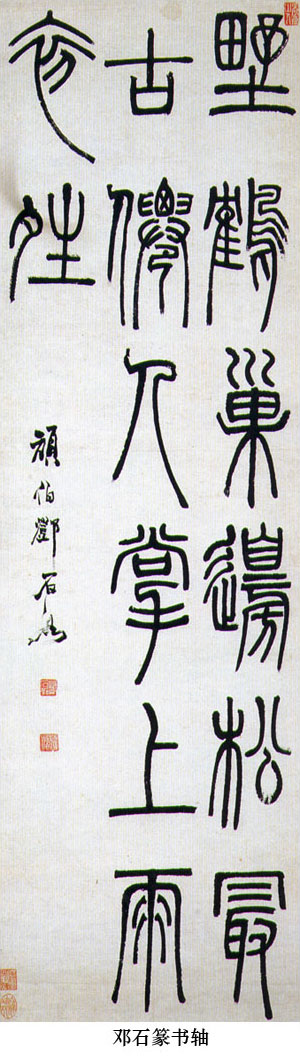 野鶴巢邊松最
古僊人掌上雨
初夝
頑伯鄧石如
邓石篆书轴